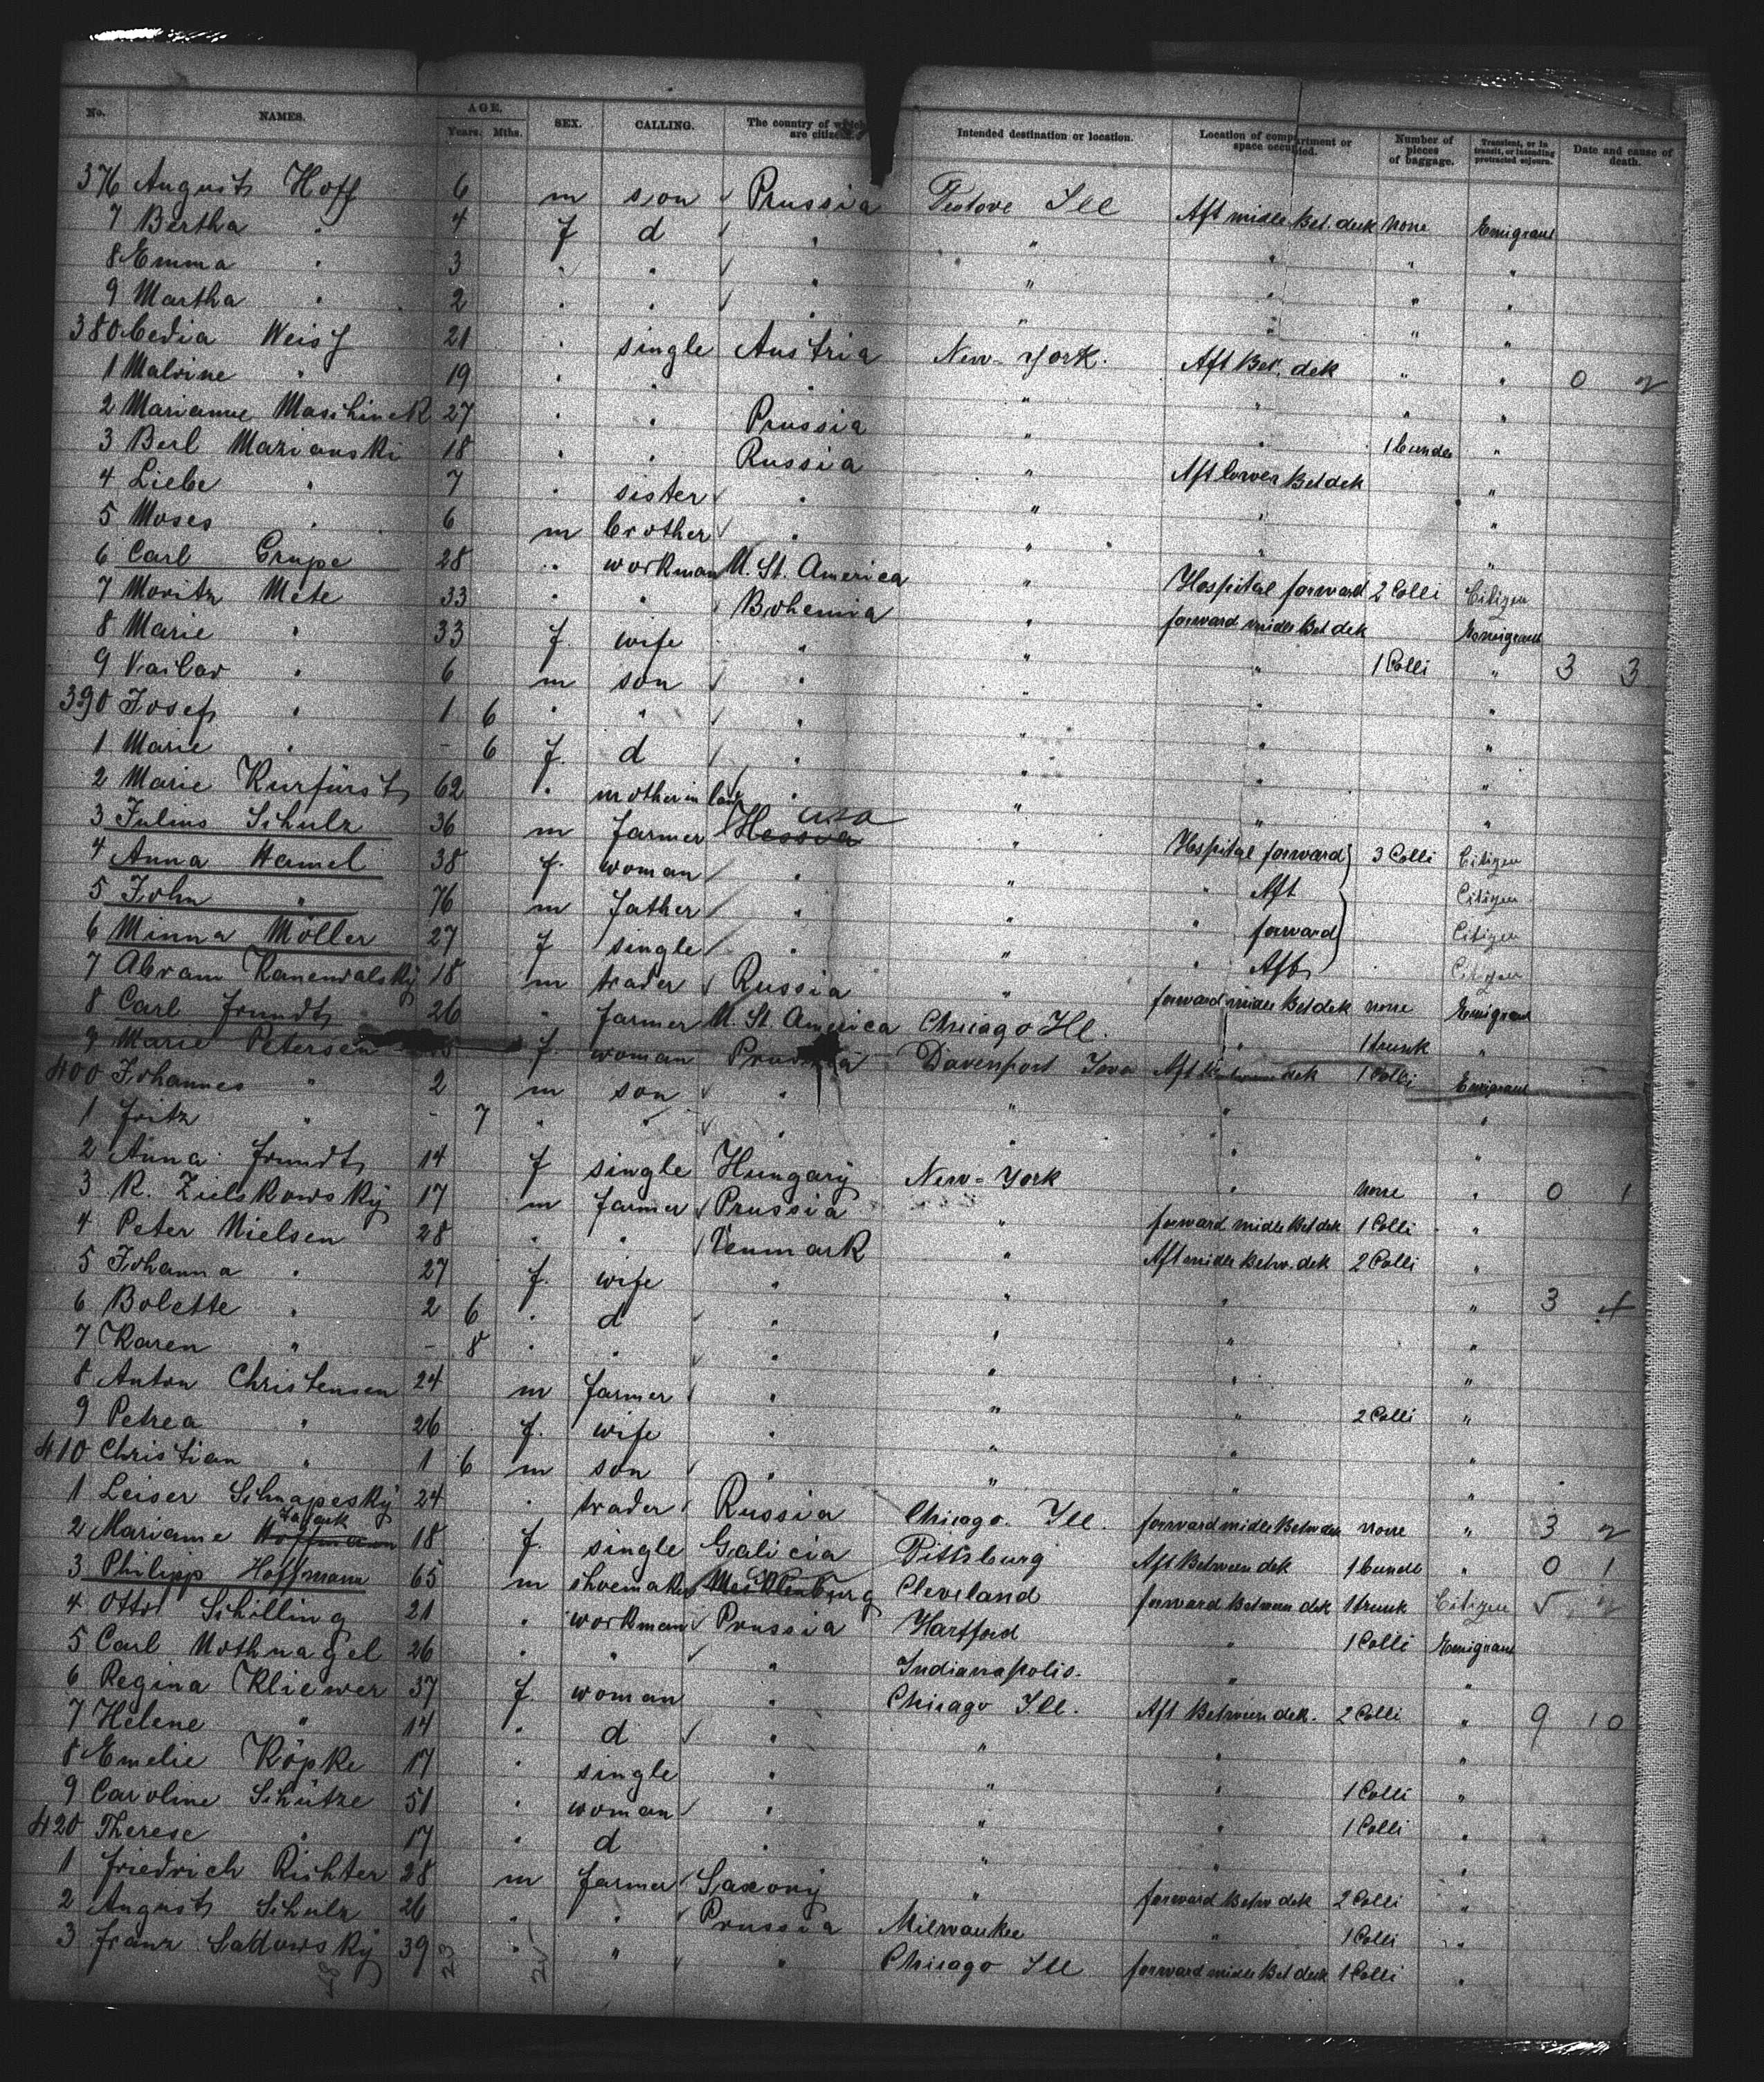 No. NAMES. AGE. Years. Mths. SEX. CALLING. The country of which are citizens. Intended destination or location. Location of compartment or space occupied. Number of pieces of baggage. Transient, or in transit, or intending protracted sojourn. Date and cause of death.
376 August Hoff 6 m son Prussia Ill Aft midle Bet. deck none Emigrant
7 Bertha " 4 f d " " " " "
8 Emma " 3 " " " " " " "
9 Martha " 2 " " " " " " "
380 Weiss 21 " single Austria New-York. Aft Bet. dek " " 0 2
1 Malvine " 19 " " " " " " "
2 Marianne Maschinek 27 " " Prussia " " 1 bundle "
3 Berl Marianski 18 " " Russia " Aft lower Bet dek "
4 Liebe " 7 " sister " " " "
5 Moses " 6 m brother " " " "
6 Carl Grupe 28 " workman U. St. America " Hospital forward 2 Colli Citizen
7 Moritz Mete 33 " " Bohemia " forward midle Bet dek Emigrant
8 Marie " 33 f. wife " " " 1 Colli " 3 3
9 " 6 m son " " " "
390 Josef " 1 6 " " " " " "
1 Marie " - 6 f. d " " " "
2 Marie Kurfürst 62 " mother in law " " " "
3 Julius Schulz 36 m farmer Hessia USA " Hospital forward 3 Colli Citizen
4 Anna Hamel 38 f. woman " " " Aft Citizen
5 John " 76 m father " " " forward Citizen
6 Minna Möller 27 f single " " " Aft Citizen
7 Abram Kanewalsky 18 m trader Russia " forward midle Bet dek none Emigrant
8 Carl Frundt 26 " farmer U. St. America Chicago Ill. " 1 trunk "
9 Marie Petersen f woman Prussia Davenport Iova Aft Between dek 1 Colli Emigrant
400 Johannes " 2 m son " " " "
1 Fritz " - 7 " " " " " "
2 Anna Frundt 14 f single Hungary New-York " none " 0 1
3 R. Zielskowsky 17 m farmer Prussia " forward midle Bet dek 1 Colli "
4 Peter Nielsen 28 " " Denmark " Aft midle Betw. dek 2 Colli "
5 Johanna " 27 f. wife " " " " 3 4
6 Bolette " 2 6 " d " " " "
7 Karen " - 8 " " " " " "
8 Anton Christensen 24 m farmer " " " 2 Colli "
9 Petrea " 26 f. wife " " " "
410 Christian " 1 6 m son " " " "
1 Leiser Schnapesky 24 " trader Russia Chicago. Ill. forward midle Betw dek none " 3 2
2 Mariame Hoffmann 18 f. single Galicia Pittsburg Aft Between dek 1 bundl " 0 1
3 Philipp Hoffmann 65 m shoemaker Mecklenburg Cleveland forward Between dek 1 trunk Citizen
4 Otto Schilling 21 " workman Prussia Hartford " 1 Colli Emigrant
5 Carl Nothnagel 26 " " " Indianapolis. " "
6 Regina Kliewer 37 f. woman " Chicago Ill. Aft Between dek. 2 Colli " 9 10
7 Helene " 14 " d " " " "
8 Emelie Köpke 17 " single " " " 1 Colli "
9 Caroline Schütze 51 " woman " " " 1 Colli "
420 Therese " 17 " d " " " "
1 Friedrich Richter 28 m farmer Saxony " forward Betw dek 2 Colli "
2 August Schulz 26 " " Prussia Milwaukee " 1 Colli "
3 Franz Sadowsky 39 " " " Chicago Ill forward midle Bet dek 1 Colli "